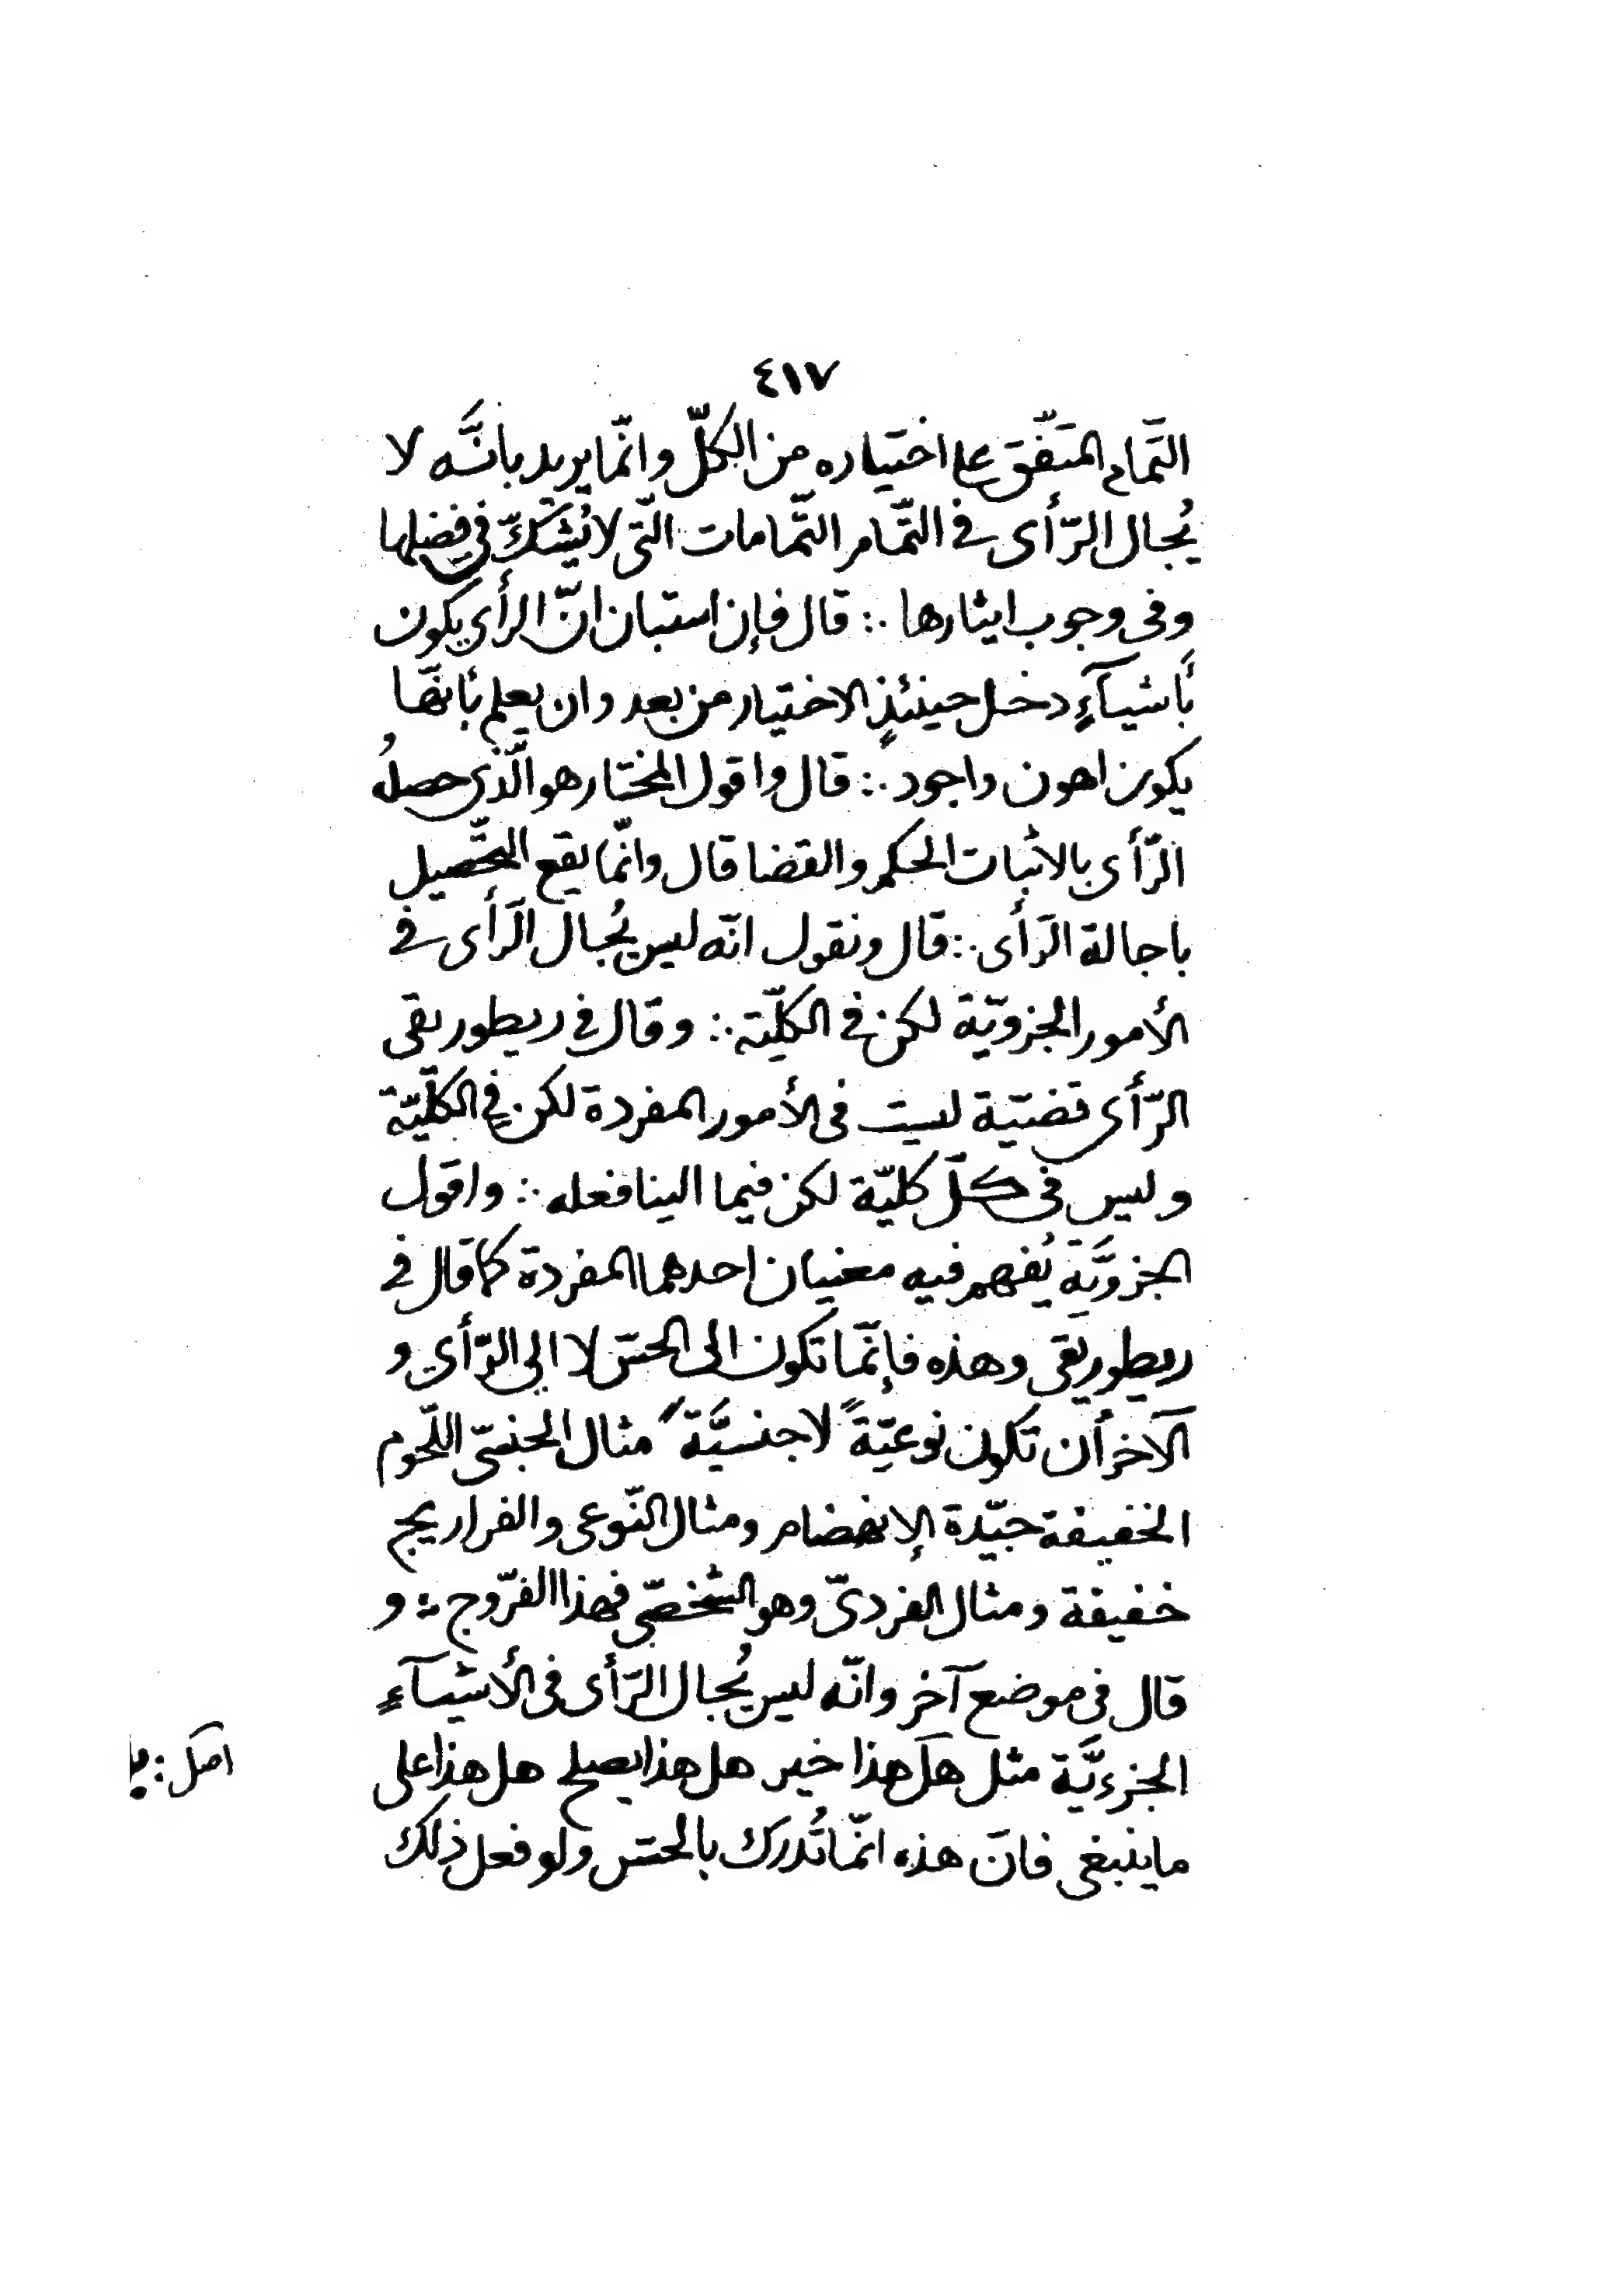 ٤١٧
التَّمام المتَّفَق على اختياره من الكلّ وانّما يريد بانَّه لا
يُجال الرّأى فى التّمام التّمامات الّتى لا يُشَكّ فى فضلها
وفى وجوب ايثارها ∴ قال فإن استبان انّ الرأى يكون
بأشيآءٍ دخل حينئذٍ الاختيار من بعد وان يعلم بأنّها
يكون اهون واجود ∴ قال واقول المختار هو الّذى حصلُه
الرّأى بالاثبات الحكم والقضا قال وانّما يقع التّحصيل
باجالة الرّأى ∴ قال ونقول انّه ليس يُجال الرّأى فى
الأمور الجزويّة لكن فى الكلّيّة ∴ وقال فى ريطوريقى
الرّأى قضيّة ليست فى الأمور المفردة لكن فى الكلّيّة
وليس فى كلّ كليّة لكن فيما الينا فعله ∴ واقول
الجزويَّة يُفهم فيه معنيان احدهما المفردة كما قال فى
ريطوريقى وهذه فإنّما تكون الى الحسّ لا الى الرّأى و
الآخر أن تكون نوعيّةً لا جنسيَّة مثال الجنسّى اللّحوم
الخفيفة جيّدة الإنهضام ومثال النّوعى والفراريج
خفيفة ومثال الفردىّ وهو الشّخصّى فهذا الفرّوج ∴ و
قال فى موضع آخر وانّه ليس يُجال الرّأى فى الأشيآءِ
الجزءيَّة مثل هل هذا خير هل هذا يصلح هل هذا على
ما ينبغى فانّ هذه انّما تُدرَك بالحسّ ولو فعل ذلك
اصل: